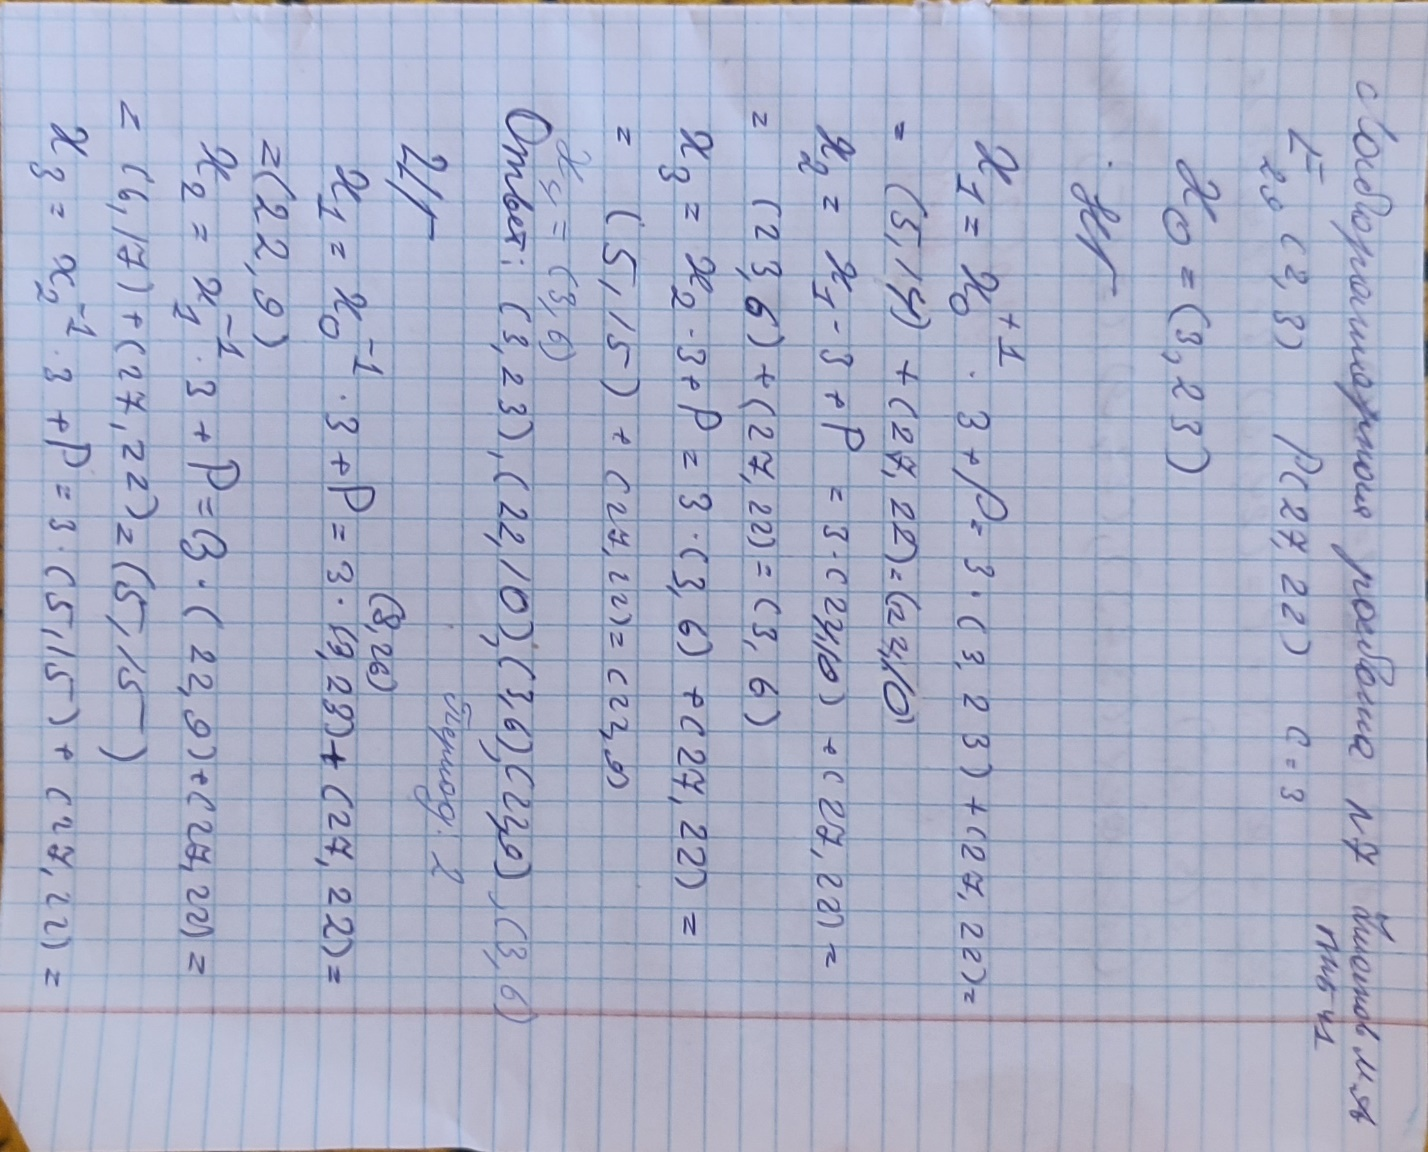 Лабораторная работа №7 Битов М.А
ПМБ-41
E₂₉ (2,3) P(27,22) C=3
x₀ = (3,23)
x₁ = x₀⁺¹ · 3 + P = 3 · (3,23) + (27,22) =
= (5,14) + (27,22) = (22,10)
x₂ = x₁ · 3 + P = 3 · (22,10) + (27,22) =
= (23,6) + (27,22) = (3,6)
x₃ = x₂ · 3 + P = 3 · (3,6) + (27,22) =
= (5,15) + (27,22) = (22,9)
x₄ = (3,6)
Ответ: (3,23), (22,10), (3,6), (22,9), (3,6)
период. 2
2)
(3,26)
x₁ = x₀⁻¹ · 3 + P = 3 · (3,23) + (27,22) =
= (22,9)
x₂ = x₁⁻¹ · 3 + P = 3 · (22,9) + (27,22) =
= (6,17) + (27,22) = (5,15)
x₃ = x₂⁻¹ · 3 + P = 3 · (5,15) + (27,22) =